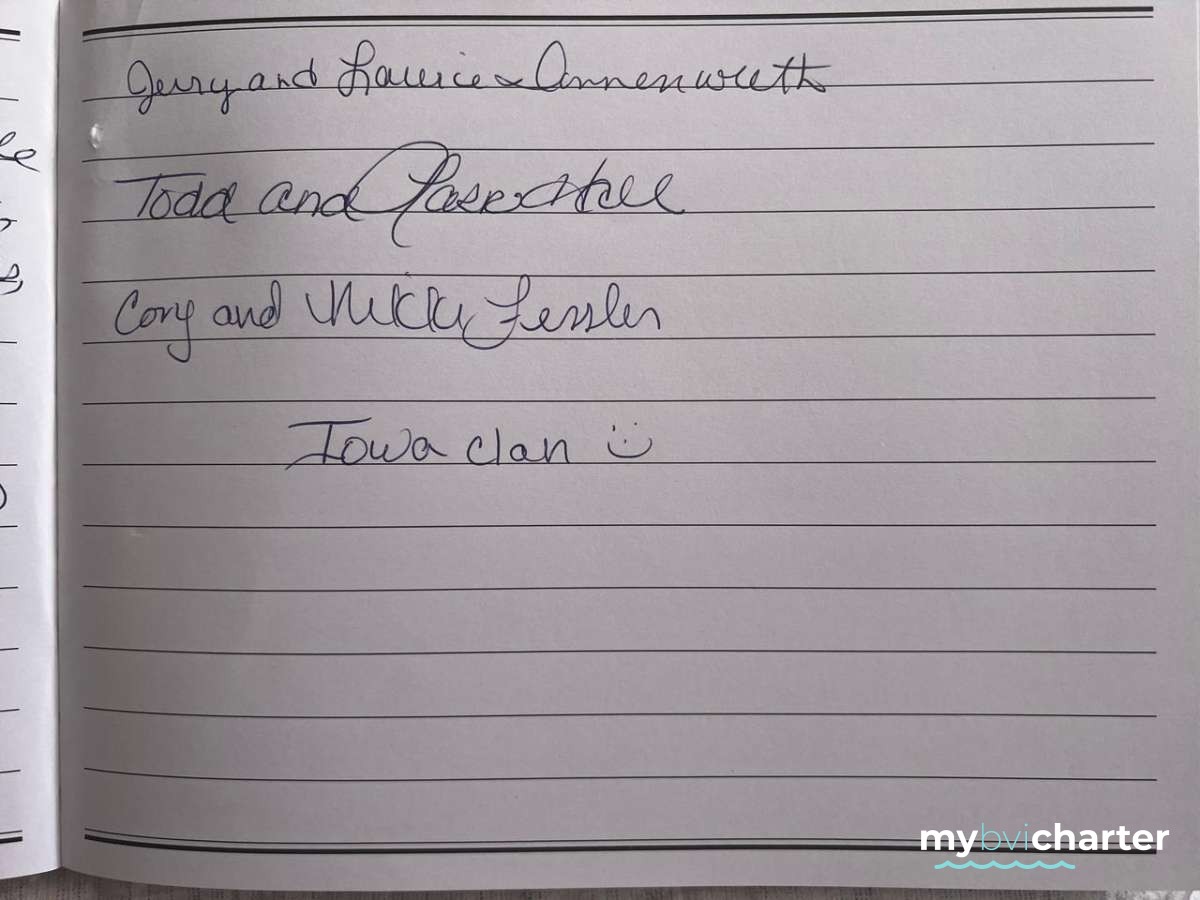 Jerry and
Todd and Hall
Cory and Nikki Fessler
Iowa clan :)
mybvicharter